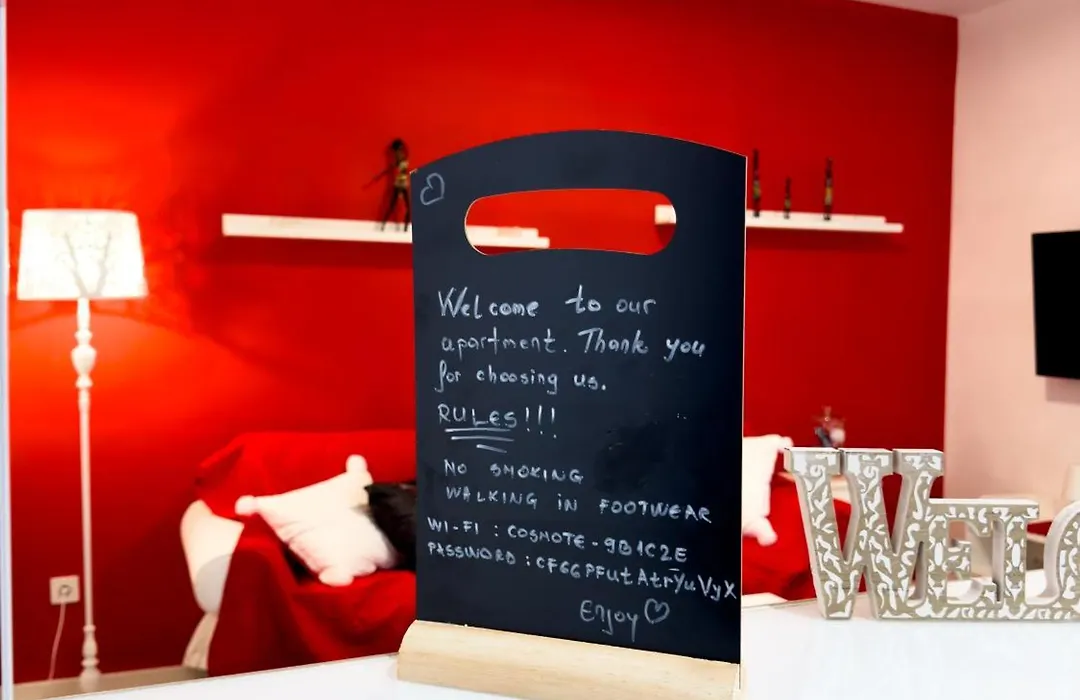 Welcome to our
apartment. Thank you
for choosing us.
RULES!!!
NO SMOKING
WALKING IN FOOTWEAR
WI-FI : COSMOTE-9B1C2E
PASSWORD :
Enjoy
WELC